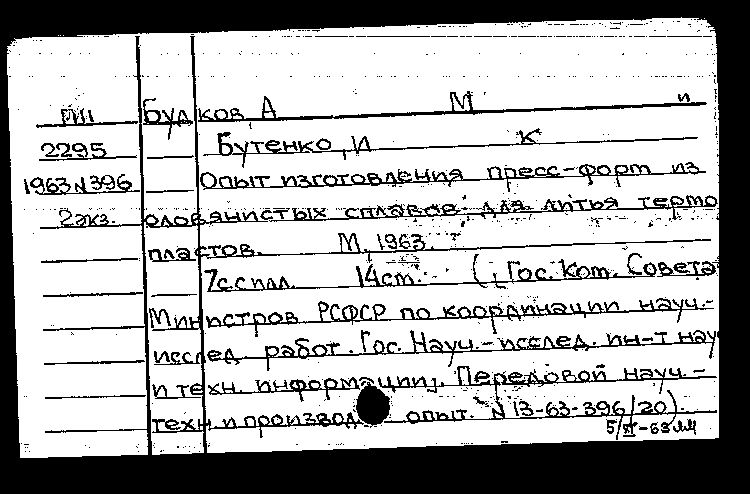 Будков, А М и
2295 Бутенко, И К
1963 N 396 Опыт изготовления пресс-форт из
2 экз. оловянистых сплавов для литья термо
пластов. М, 1963.
7с.с илл. 14ст. (Гос. Ком. Совета
Министров РСФСР по координации науч.-
исслед работ. Гос. Науч.-исслед. ин-т нау
и техн. информации). Передовой науч.-
техн и производ опыт. N 13-63-396/20).
5/XI-63